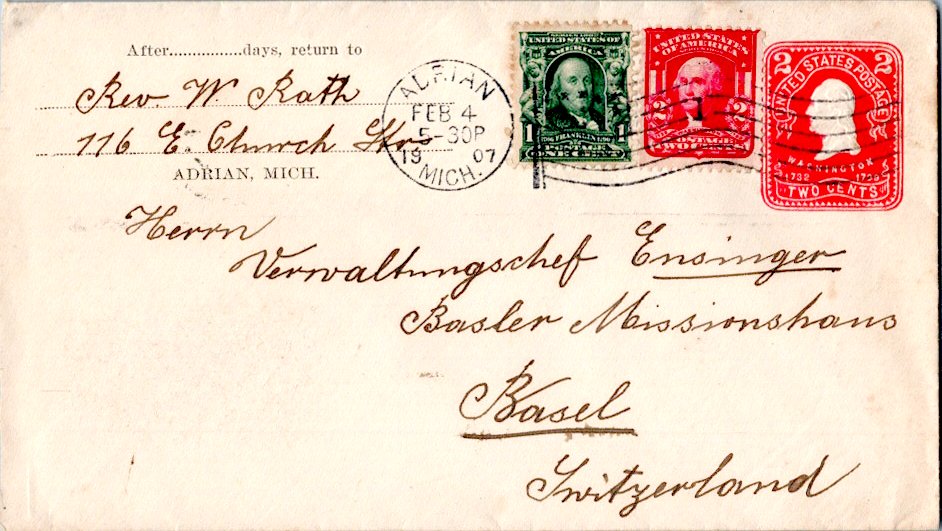 After...............days, return to
Rev. W. Rath
116 E. Church Str.
ADRIAN, MICH.
ADRIAN
FEB 4
5-30P
1907
MICH.
SERIES 1902
UNITED STATES OF
AMERICA
FRANKLIN
1 1
POSTAGE
ONE CENT
UNITED STATES
OF AMERICA
1
2 2
POSTAGE
TWO CENTS
2 2
UNITED STATES POSTAGE
WASHINGTON
1732 1799
TWO CENTS
Herrn
Verwaltungschef Ensinger
Basler Missionshaus
Basel
Switzerland